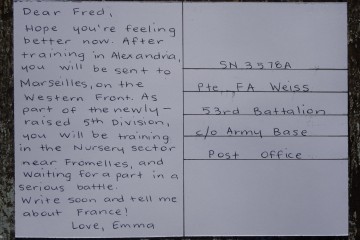 Dear Fred,
Hope you're feeling
better now. After
training in Alexandria,
you will be sent to
Marseilles, on the
Western Front. As
part of the newly-
raised 5th Division,
you will be training
in the Nursery sector
near Fromelles, and
waiting for a part in a
serious battle.
Write soon and tell me
about France!
Love, Emma
SN 3578A
Pte. FA Weiss
53rd Battalion
c/o Army Base
Post Office